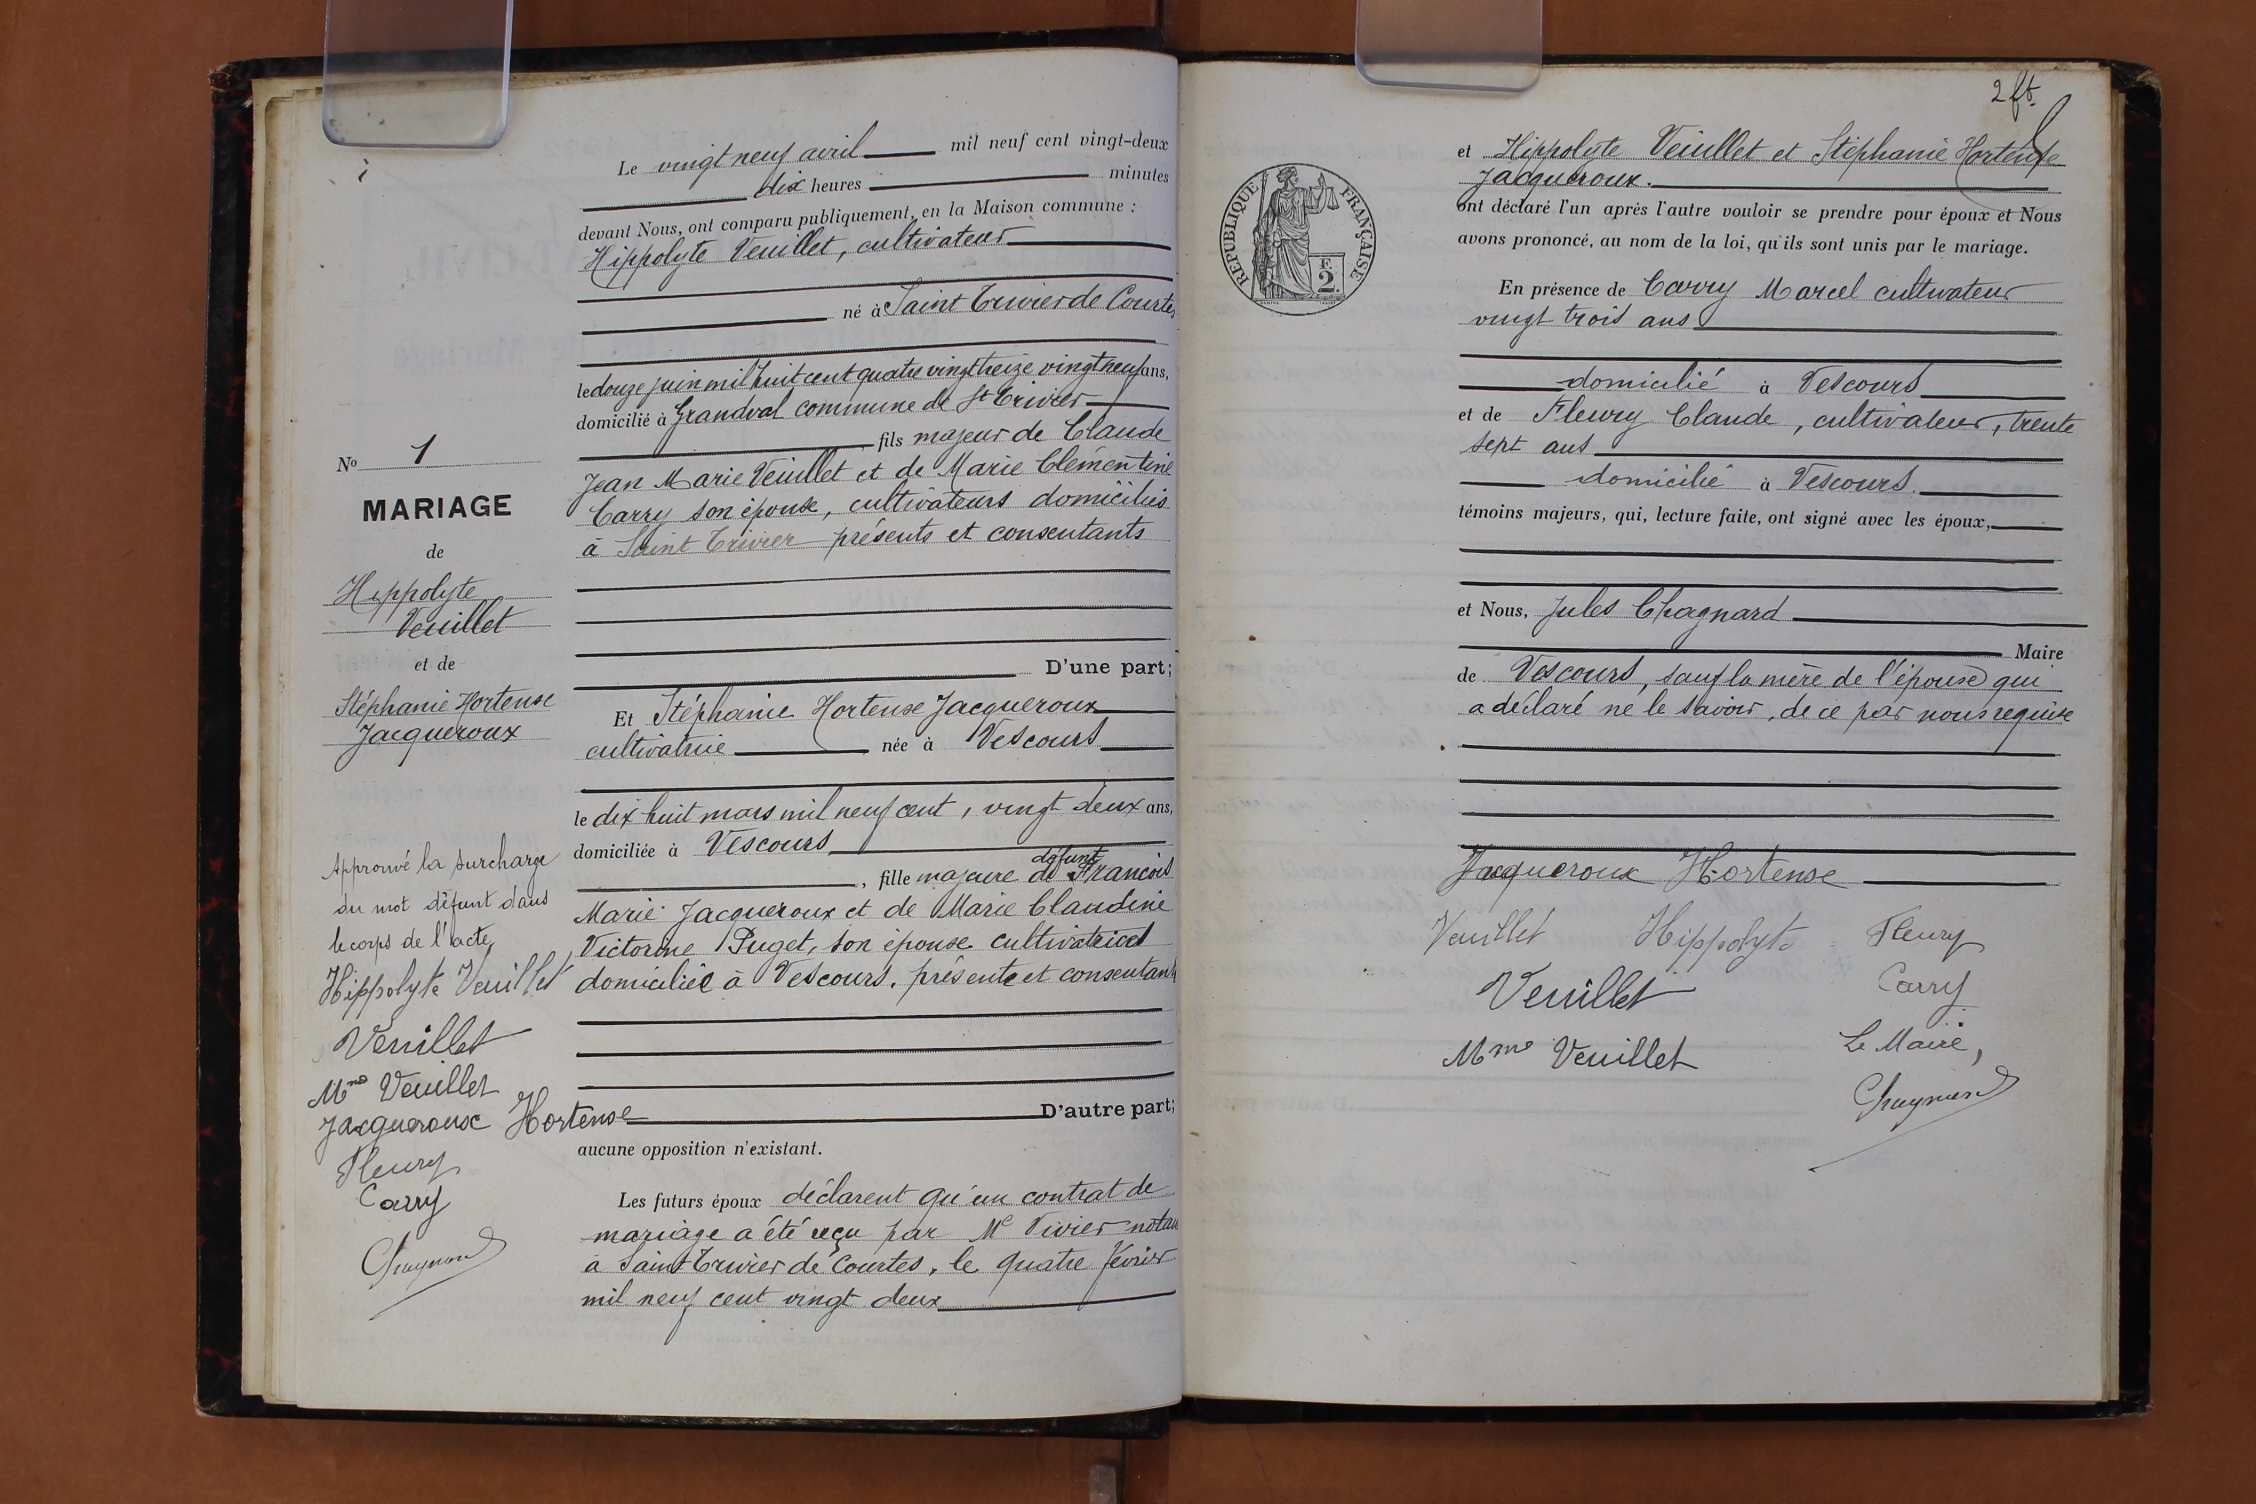 Le vingt neuf avril mil neuf cent vingt-deux
dix heures minutes
devant Nous, ont comparu publiquement, en la Maison commune :
Hippolyte Veuillet, cultivateur
né à Saint Trivier de Courtes
le douze juin mil huit cent quatre vingt treize vingt neuf ans,
domicilié à Grandval commune de St Trivier
fils majeur de Claude
Jean Marie Veuillet et de Marie Clémentine
Carry son épouse, cultivateurs domiciliés
à Saint Trivier présents et consentants
D'une part;
Et Stéphanie Hortense Jacqueroux
cultivatrice née à Vescours
le dix huit mars mil neuf cent, vingt deux ans,
domiciliée à Vescours
défunt
, fille majeure de François
Marie Jacqueroux et de Marie Claudine
Victorine Puget, son épouse cultivatrice
domiciliée à Vescours, présente et consentante
D'autre part;
aucune opposition n'existant.
Les futurs époux déclarent qu'un contrat de
mariage a été reçu par Me Vivier notaire
à Saint Trivier de Courtes, le quatre février
mil neuf cent vingt deux
No 1
MARIAGE
de
Hippolyte
Veuillet
et de
Stéphanie Hortense
Jacqueroux
Approuvé la surcharge
du mot défunt dans
le corps de l'acte
Hippolyte Veuillet
Veuillet
Mme Veuillet
Jacqueroux Hortense
Fleury
Carry
Chagnard
2 ft.
RÉPUBLIQUE FRANÇAISE
F.
2.
et Hippolyte Veuillet et Stéphanie Hortense
Jacqueroux.
ont déclaré l'un après l'autre vouloir se prendre pour époux et Nous
avons prononcé, au nom de la loi, qu'ils sont unis par le mariage.
En présence de Carry Marcel cultivateur
vingt trois ans
domicilié à Vescours
et de Fleury Claude, cultivateur, trente
sept ans
domicilié à Vescours.
témoins majeurs, qui, lecture faite, ont signé avec les époux,
et Nous, Jules Chagnard
Maire
de Vescours, sauf la mère de l'épouse qui
a déclaré ne le savoir, de ce par nous requise
Jacqueroux Hortense
Veuillet Hippolyte Fleury
Veuillet Carry
Mme Veuillet Le Maire,
Chagnard